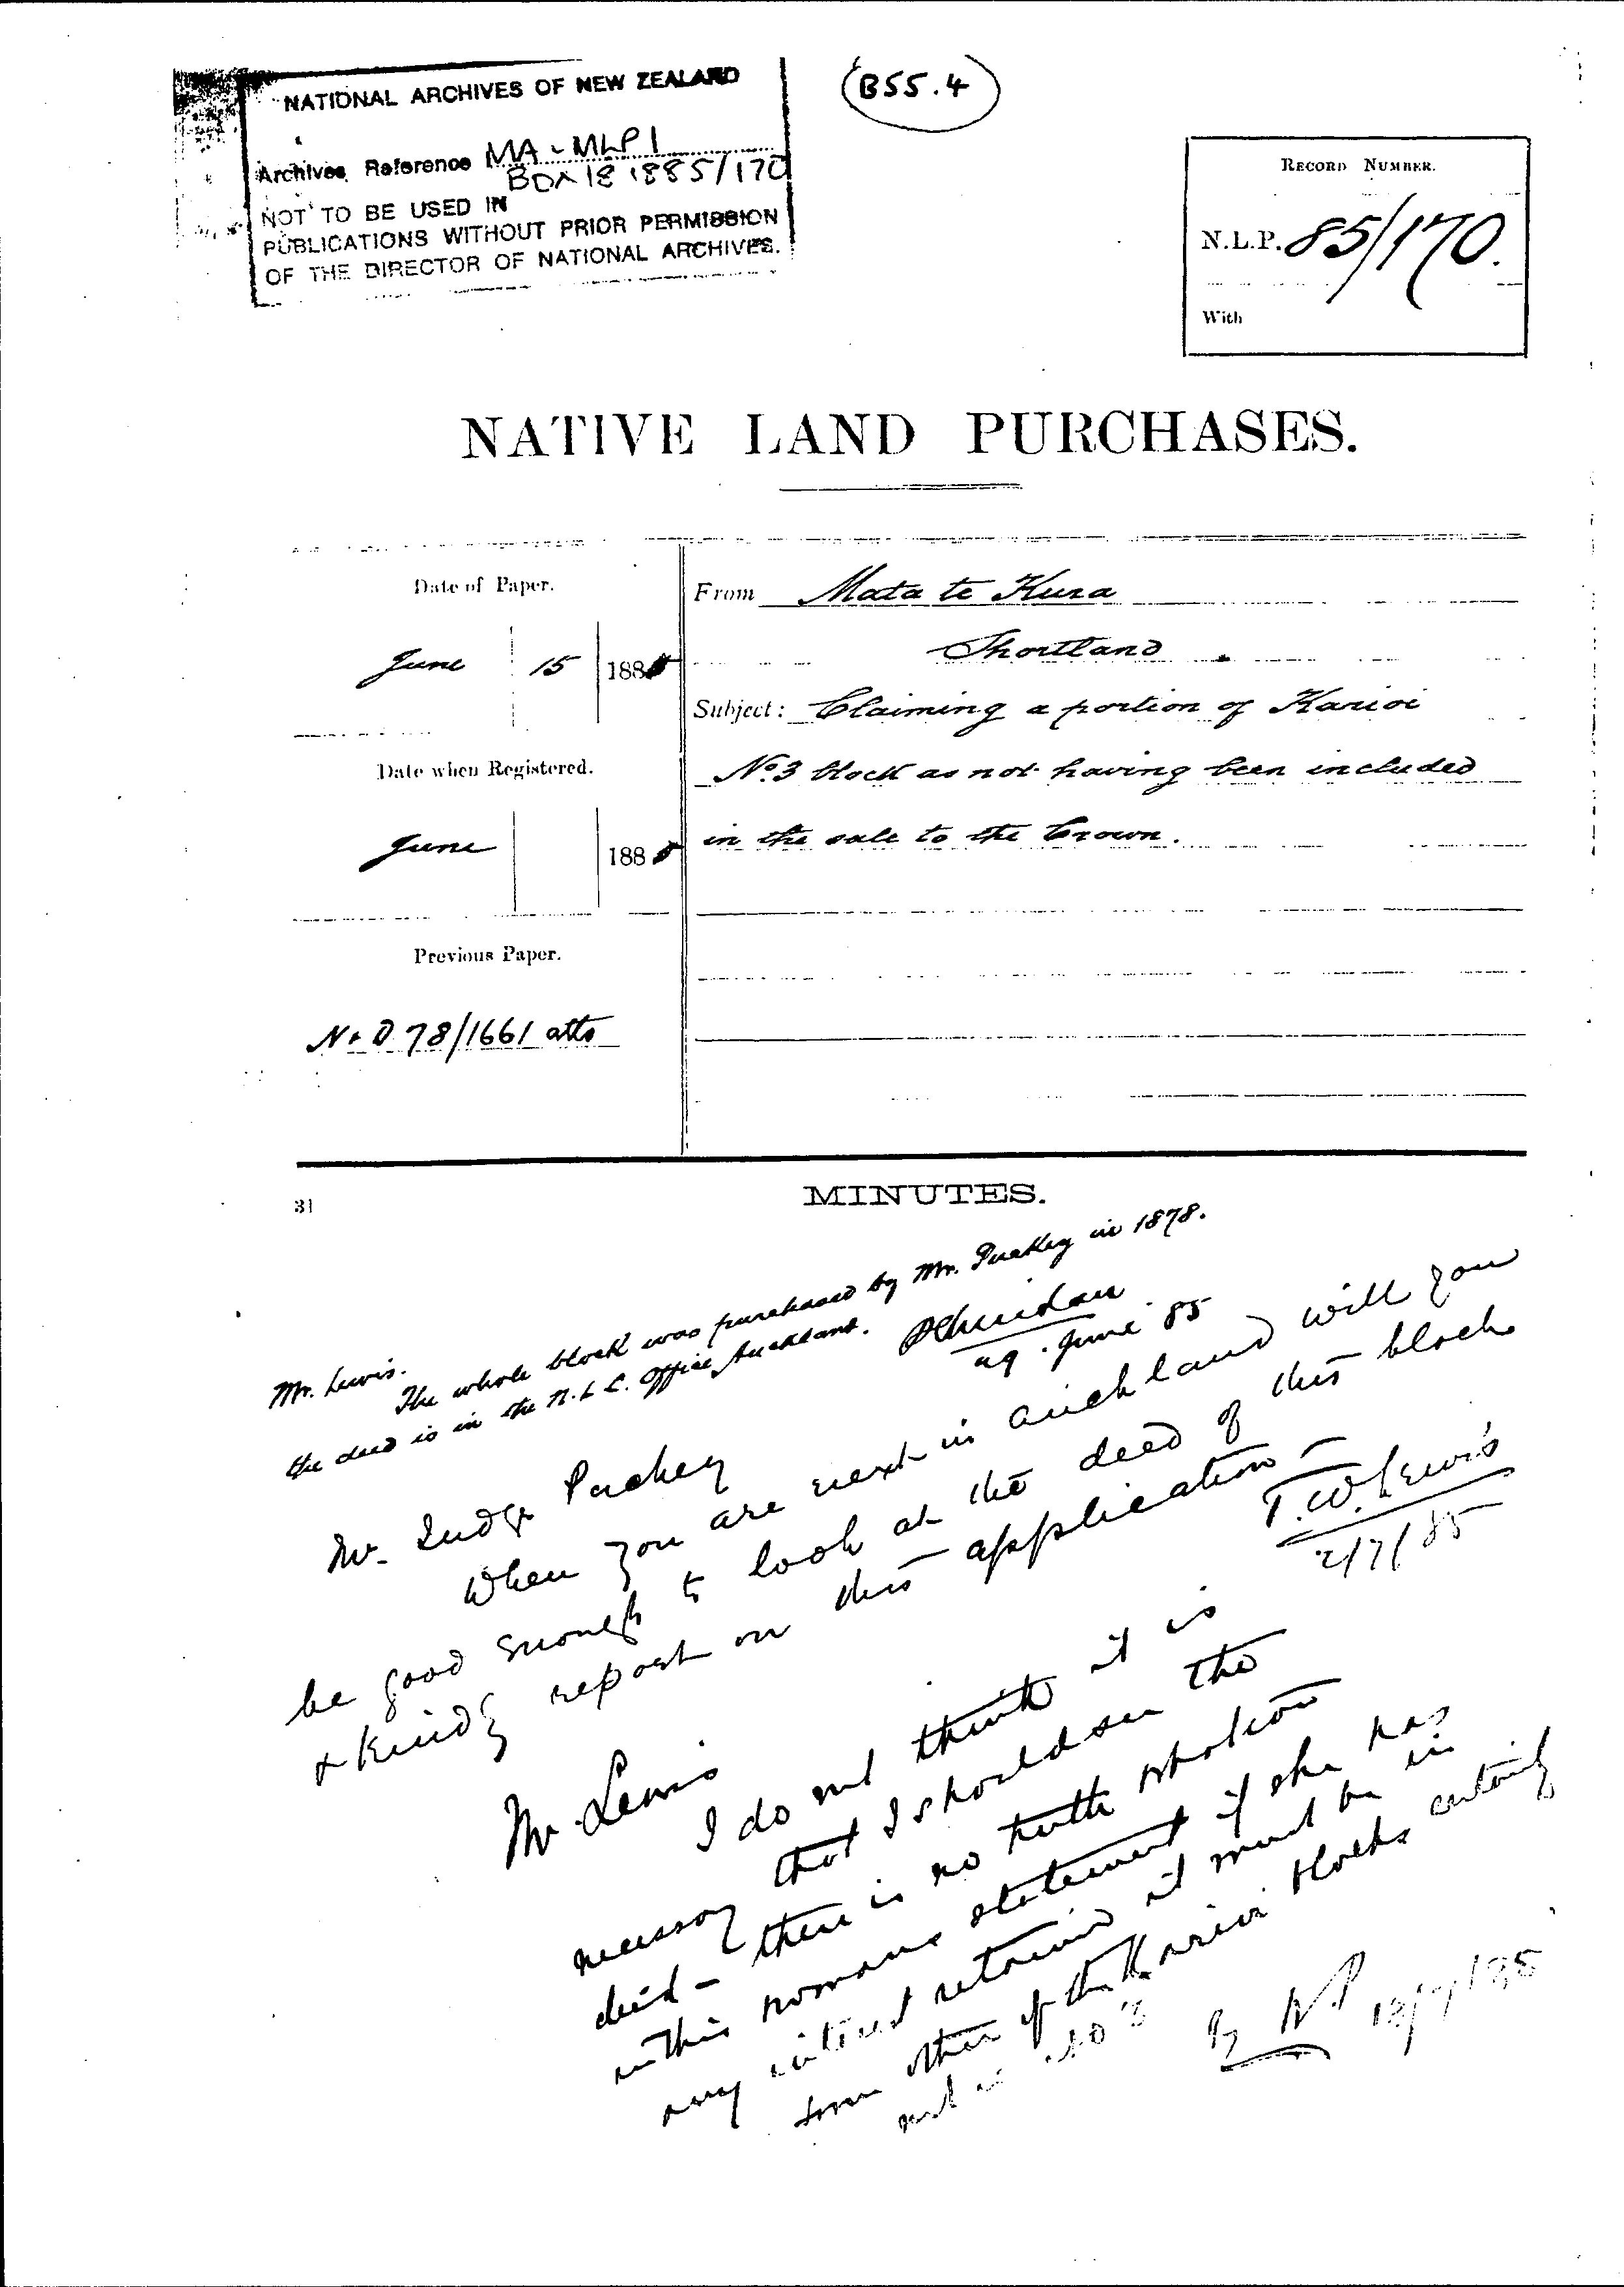 NATIONAL ARCHIVES OF NEW ZEALAND
Archives Reference MA - MLP 1
Box 18 1885/170
NOT TO BE USED IN
PUBLICATIONS WITHOUT PRIOR PERMISSION
OF THE DIRECTOR OF NATIONAL ARCHIVES.
B55.4
RECORD NUMBER.
N.L.P. 85/170.
With
NATIVE LAND PURCHASES.
Date of Paper.
June 15 1885
Date when Registered.
June 1885
Previous Paper.
78/1661 atts
From Mata te Kura
Shortland
Subject: Claiming a portion of Karioi
No. 3 block as not having been included
in the sale to the Crown.
31
MINUTES.
Mr. Lewis.
The whole block was purchased by Mr. Puckey in 1878.
the deed is in the N.L.C. Office, Auckland.
PSheridan
29 June 85
Mr. Judge Puckey
When you are next in Auckland will you
be good enough to look at the deed of this block
& kindly report on this application -
T.W. Lewis
2/7/85
Mr Lewis
I do not think it is
necessary that I should see the
deed - there is no truth whatever
in this womans statement if she has
any interest retained it must be in
some other of the Karioi blocks certainly
not in No 3
13/7/85